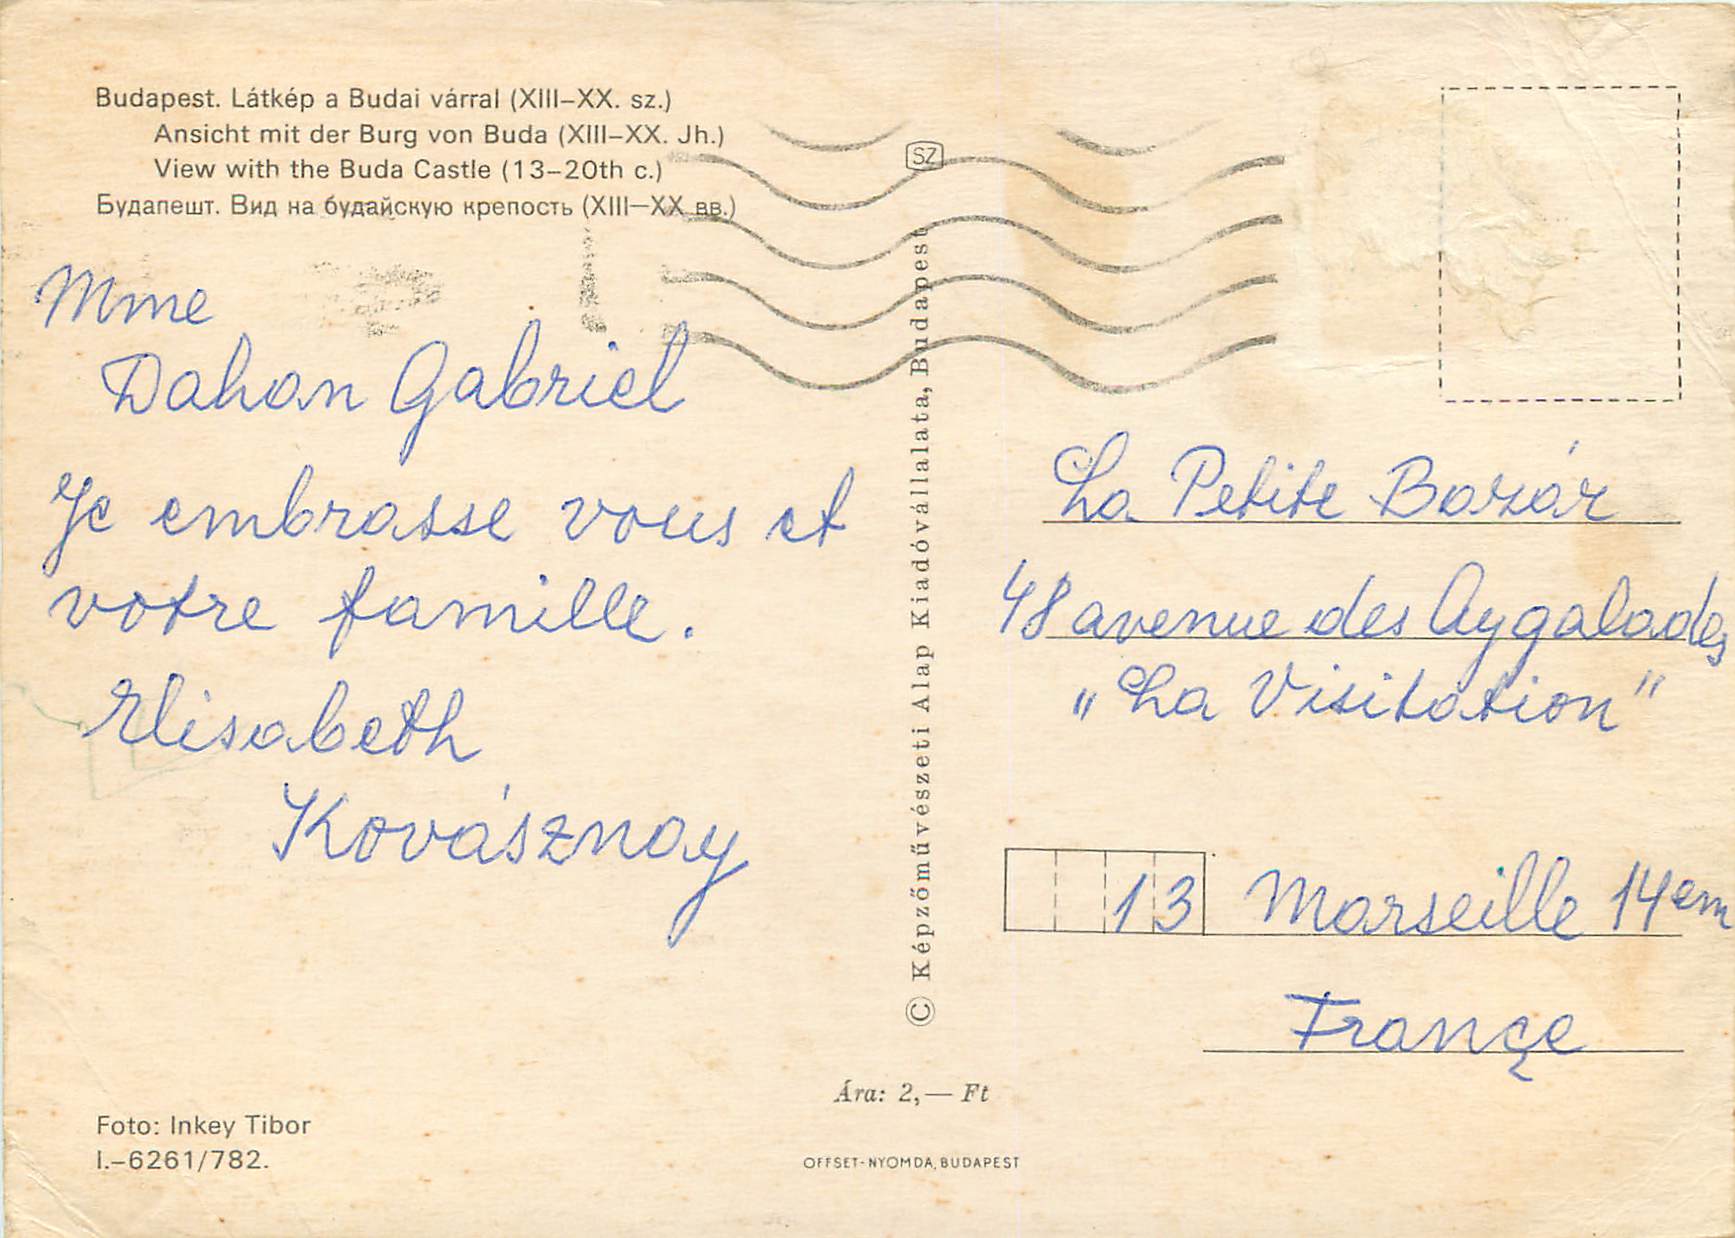 Budapest. Látkép a Budai várral (XIII–XX. sz.)
Ansicht mit der Burg von Buda (XIII–XX. Jh.)
View with the Buda Castle (13–20th c.)
Будапешт. Вид на будайскую крепость (XIII—XX вв.)
Mme
Dahan Gabriel
Je embrasse vous et
votre famille.
Elisabeth
Kovásznay
Foto: Inkey Tibor
I.–6261/782.
SZ
© Képzőművészeti Alap Kiadóvállalata, Budapest
Ára: 2,— Ft
OFFSET-NYOMDA, BUDAPEST
La Petite Bazár
48 avenue des Aygalades
„La Visitation”
13 Marseille 14em
Françe